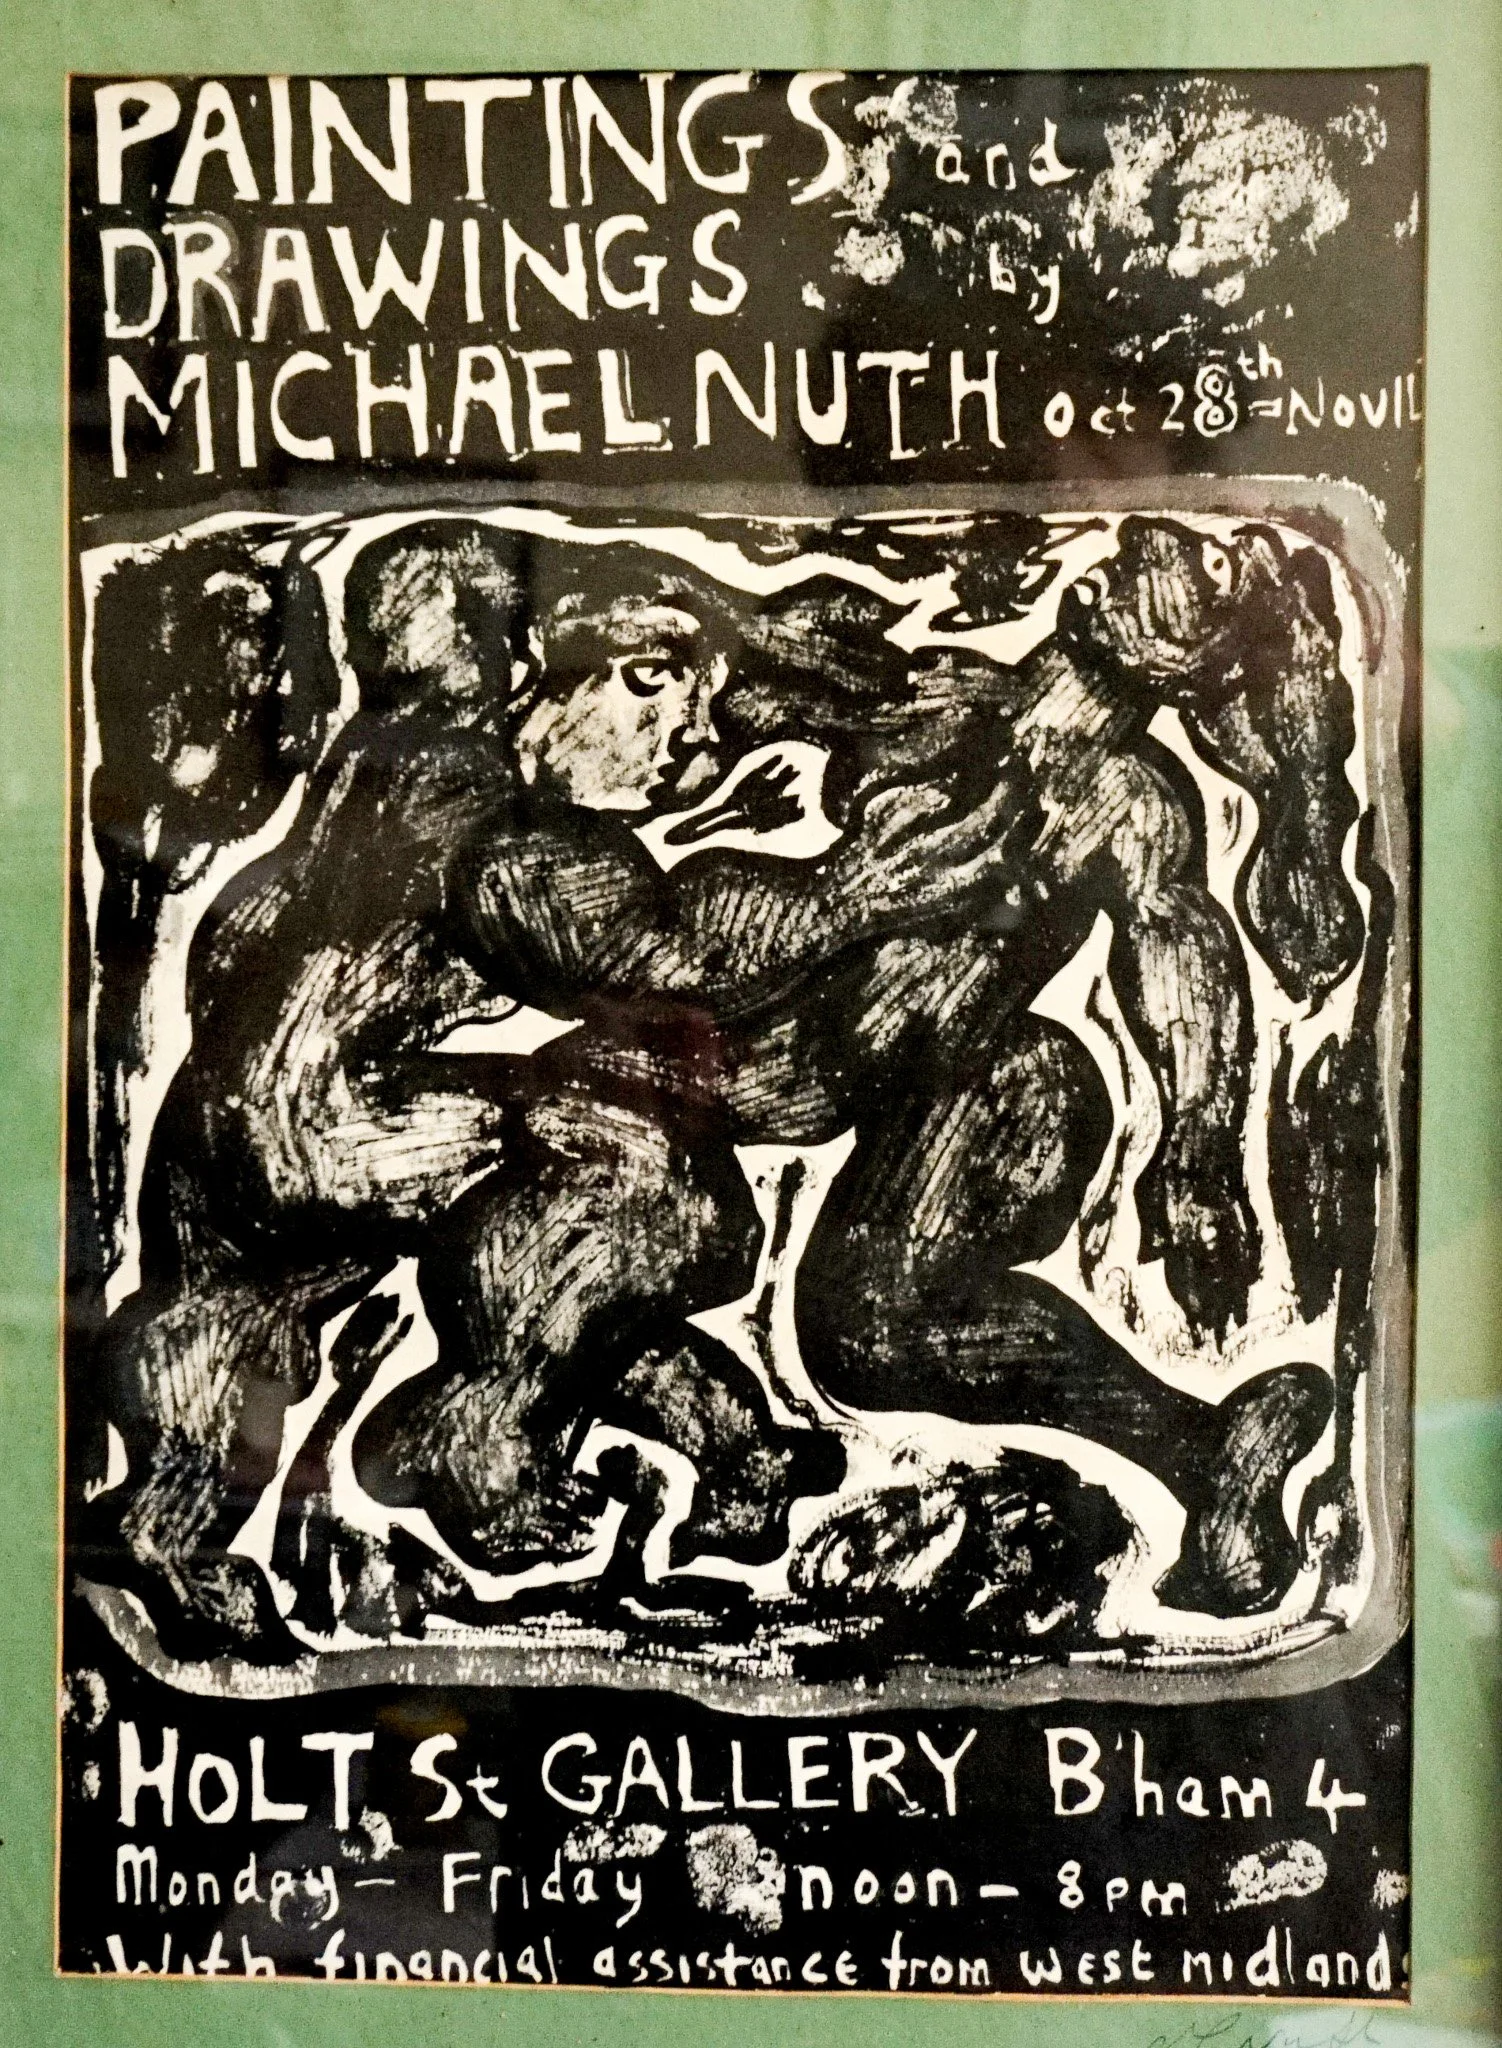 PAINTINGS and
DRAWINGS by
MICHAEL NUTH Oct 28th - Nov 11
HOLT St GALLERY B'ham 4
Monday - Friday noon - 8pm
With financial assistance from west midlands